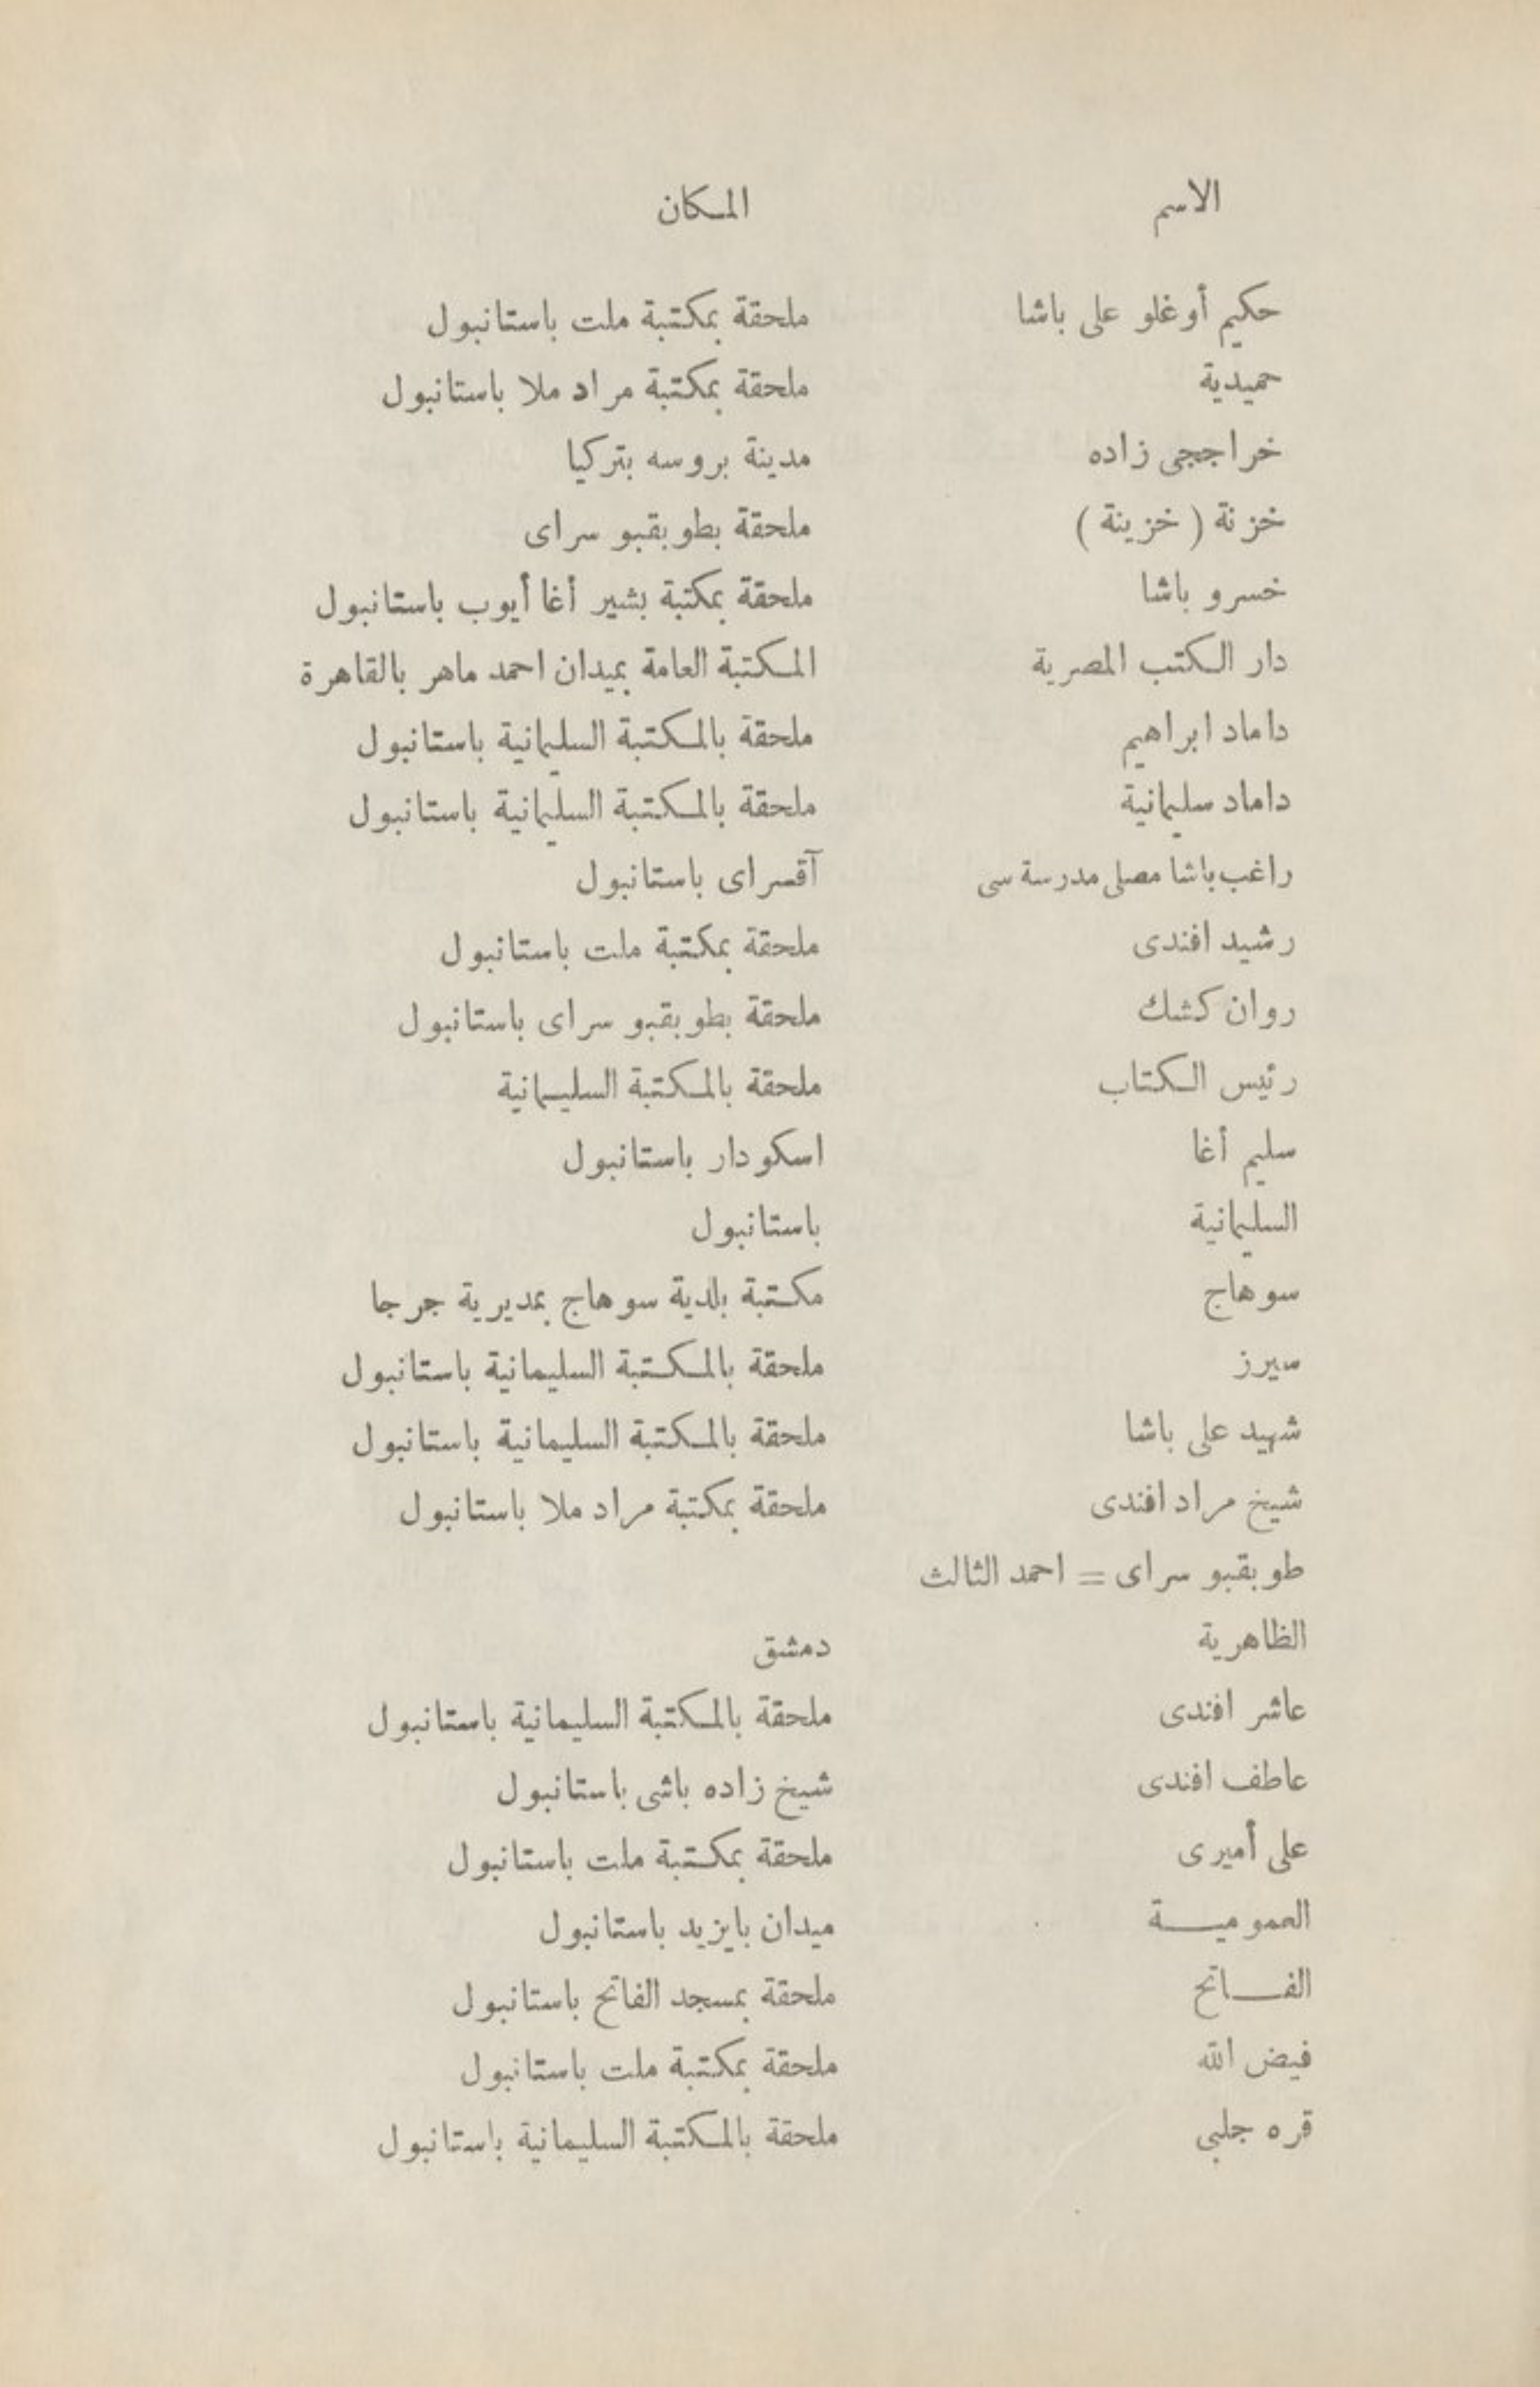 الاسم المكان
حكيم أوغلو على باشا ملحقة بمكتبة ملت باستانبول
حميدية ملحقة بمكتبة مراد ملا باستانبول
خراججى زاده مدينة بروسه بتركيا
خزنة ( خزينة ) ملحقة بطوبقبو سراى
خسرو باشا ملحقة بمكتبة بشير أغا أيوب باستانبول
دار الكتب المصرية المكتبة العامة بميدان احمد ماهر بالقاهرة
داماد ابراهيم ملحقة بالمكتبة السليمانية باستانبول
داماد سليمانية ملحقة بالمكتبة السليمانية باستانبول
راغب باشا مصلى مدرسة سى آقسراى باستانبول
رشيد افندى ملحقة بمكتبة ملت باستانبول
روان كشك ملحقة بطوبقبو سراى باستانبول
رئيس الكتاب ملحقة بالمكتبة السليمانية
سليم أغا اسكودار باستانبول
السليمانية باستانبول
سوهاج مكتبة بلدية سوهاج بمديرية جرجا
سيرز ملحقة بالمكتبة السليمانية باستانبول
شهيد على باشا ملحقة بالمكتبة السليمانية باستانبول
شيخ مراد افندى ملحقة بمكتبة مراد ملا باستانبول
طوبقبو سراى = احمد الثالث
الظاهرية دمشق
عاشر افندى ملحقة بالمكتبة السليمانية باستانبول
عاطف افندى شيخ زاده باشى باستانبول
على أميرى ملحقة بمكتبة ملت باستانبول
العموميـة ميدان بايزيد باستانبول
الفـاتح ملحقة بمسجد الفاتح باستانبول
فيض الله ملحقة بمكتبة ملت باستانبول
قره جلبى ملحقة بالمكتبة السليمانية باستانبول